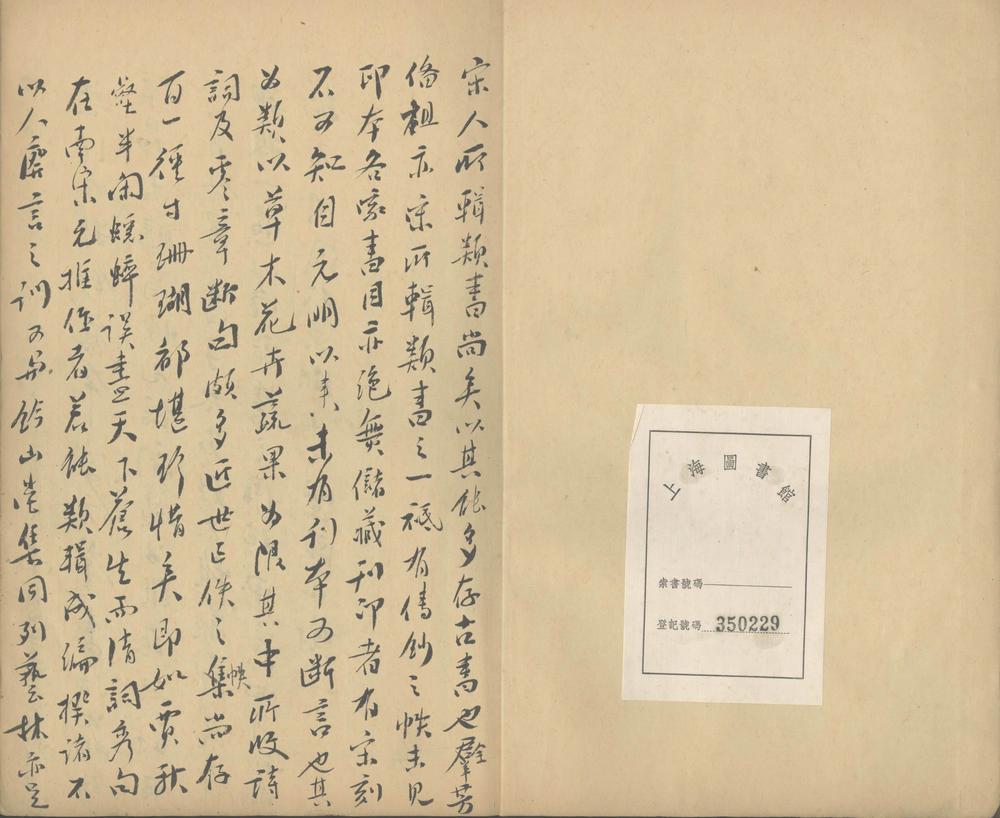 宋人所輯類書尚矣以其能多存古書也群芳
備祖亦宋所輯類書之一祗有傳鈔之帙未見
印本各家書目亦絕無儲藏刊印者有宋刻
不可知自元明以來未有刊本可斷言也其
為類以草木花卉蔬果為限其中所收詩
詞及零章斷句頗多近世已佚之集尚存
百一徑寸珊瑚都堪珍惜矣即如賈秋
壑半閒蟋蟀誤盡天下蒼生而清詞秀句
在南宋元推作者若能類輯成編揆諸不
以人廢言之訓可與鈐山堂集同列藝林亦足
帙
上海圖書館
索書號碼
登記號碼 350229